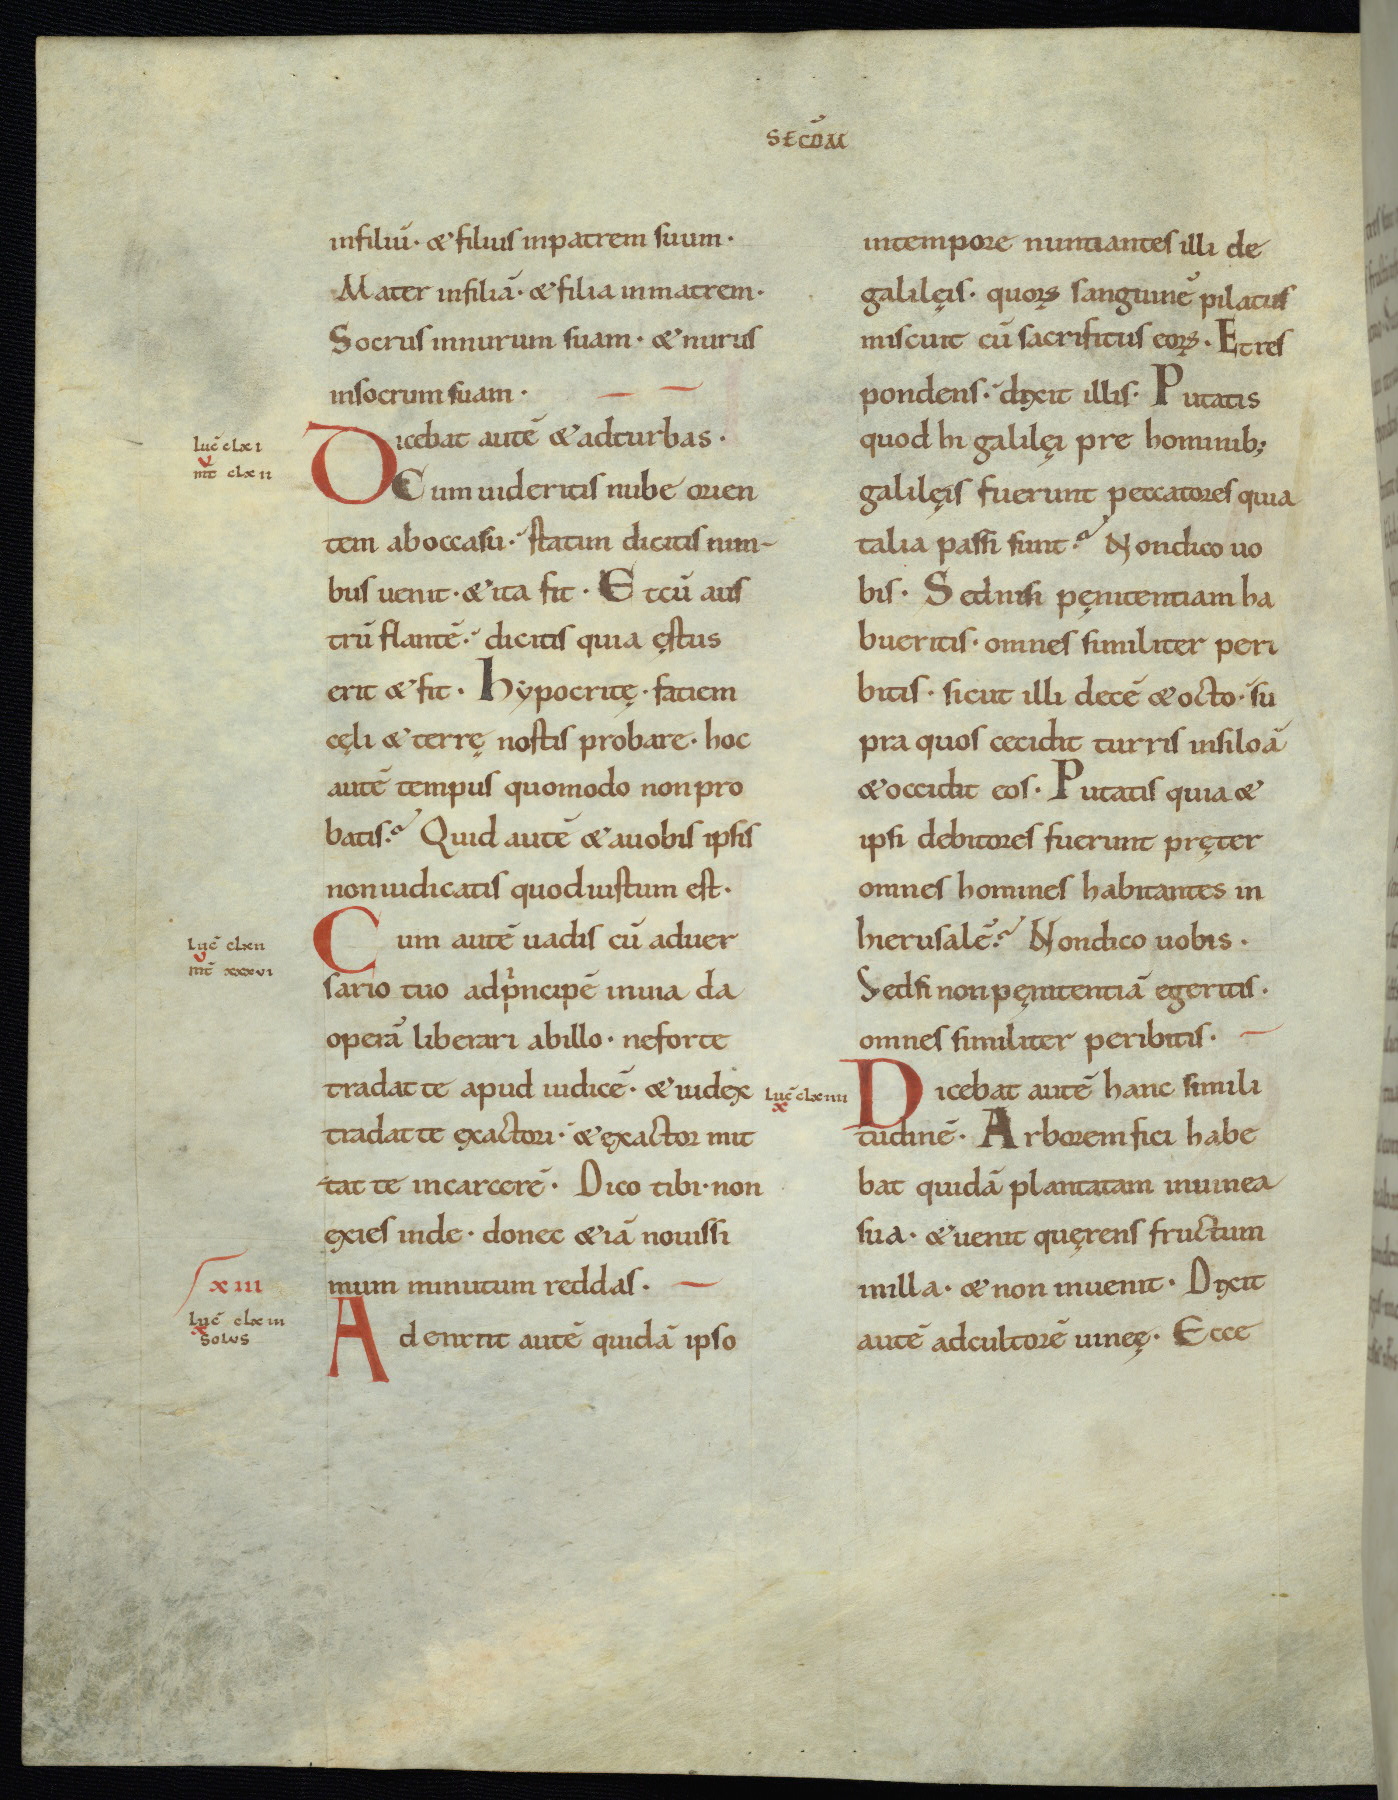 SECDM̄
infiliū· & filius inpatrem suum·
Mater infiliā· & filia inmatrem·
Socrus innurum suam· & nurus
insocrum suam·
Dicebat autē & adturbas·
Cum uideritis nubē orien
tem aboccasu· statim dicitis nim-
bus uenit· & ita fit· Et cū aus
trū flantē· dicitis quia ęstus
erit & fit· hypocritę· fatiem
cęli & terrę nostis probare· hoc
autē tempus quomodo nonpro
batis? Quid autē & auobis ipsis
noniudicatis quodiustum est·
Cum autē uadis cū aduer
sario tuo adpⁱncipē inuia da
operā liberari abillo· neforte
tradat te apud iudicē· & iudex
tradat te exactori· & exactor mit
tat te incarcerē· Dico tibi· non
exies inde· donec &iā nouissi
mum minutum reddas·
Aderant autē quidā ipso
lūc clxi
v
mt̄ clxii
lūc clxii
v
mt̄ xxxvi
xiii
lūc clxiii
x
solus
intempore nuntiantes illi de
galilęis· quoꝝ sanguinē pilatus
miscuit cū sacrifitiis eoꝝ· Et res
pondens· dixit illis· Putatis
quod hi galilęi pre hominib;
galilęis fuerunt peccatores quia
talia passi sunt? Nondico uo
bis· Sednisi pęnitentiam ha
bueritis· omnes similiter peri
bitis· sicut illi decē & octo· su
pra quos cecidit turris insiloā
& occidit eos· Putatis quia &
ipsi debitores fuerunt pręter
omnes homines habitantes in
hierusalē? Nondico uobis·
Sedsi non pęnitentiā egeritis·
omnes similiter peribitis·
lūc clxiiii
x
Dicebat autē hanc simili
tudinē· Arborem fici habe
bat quidā plantatam inuinea
sua· & uenit quęrens fructum
inilla· & non inuenit· Dixit
autē adcultorē uineę· Ecce